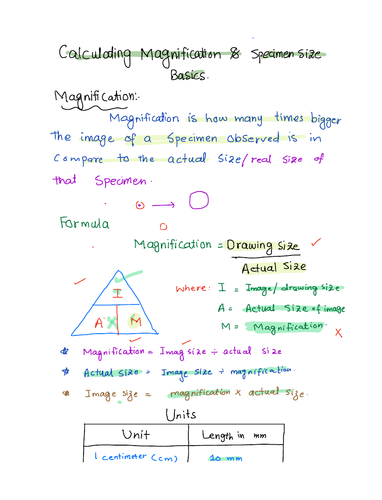 Calculating Magnification & Specimen Size
Basics.
Magnification:-
Magnification is how many times bigger
The image of a Specimen Observed is in
Compare to the actual Size/real Size of
that Specimen.
Formula
Magnification = Drawing Size
Actual Size
I
A
M
where: I = Image/drawing size
A = Actual Size of image
M = Magnification
Magnification = Imag size ÷ actual size
Actual size = Image Size ÷ magnification.
Image size = magnification x actual size.
Units
Unit Length in mm
1 centimeter (cm) 10 mm